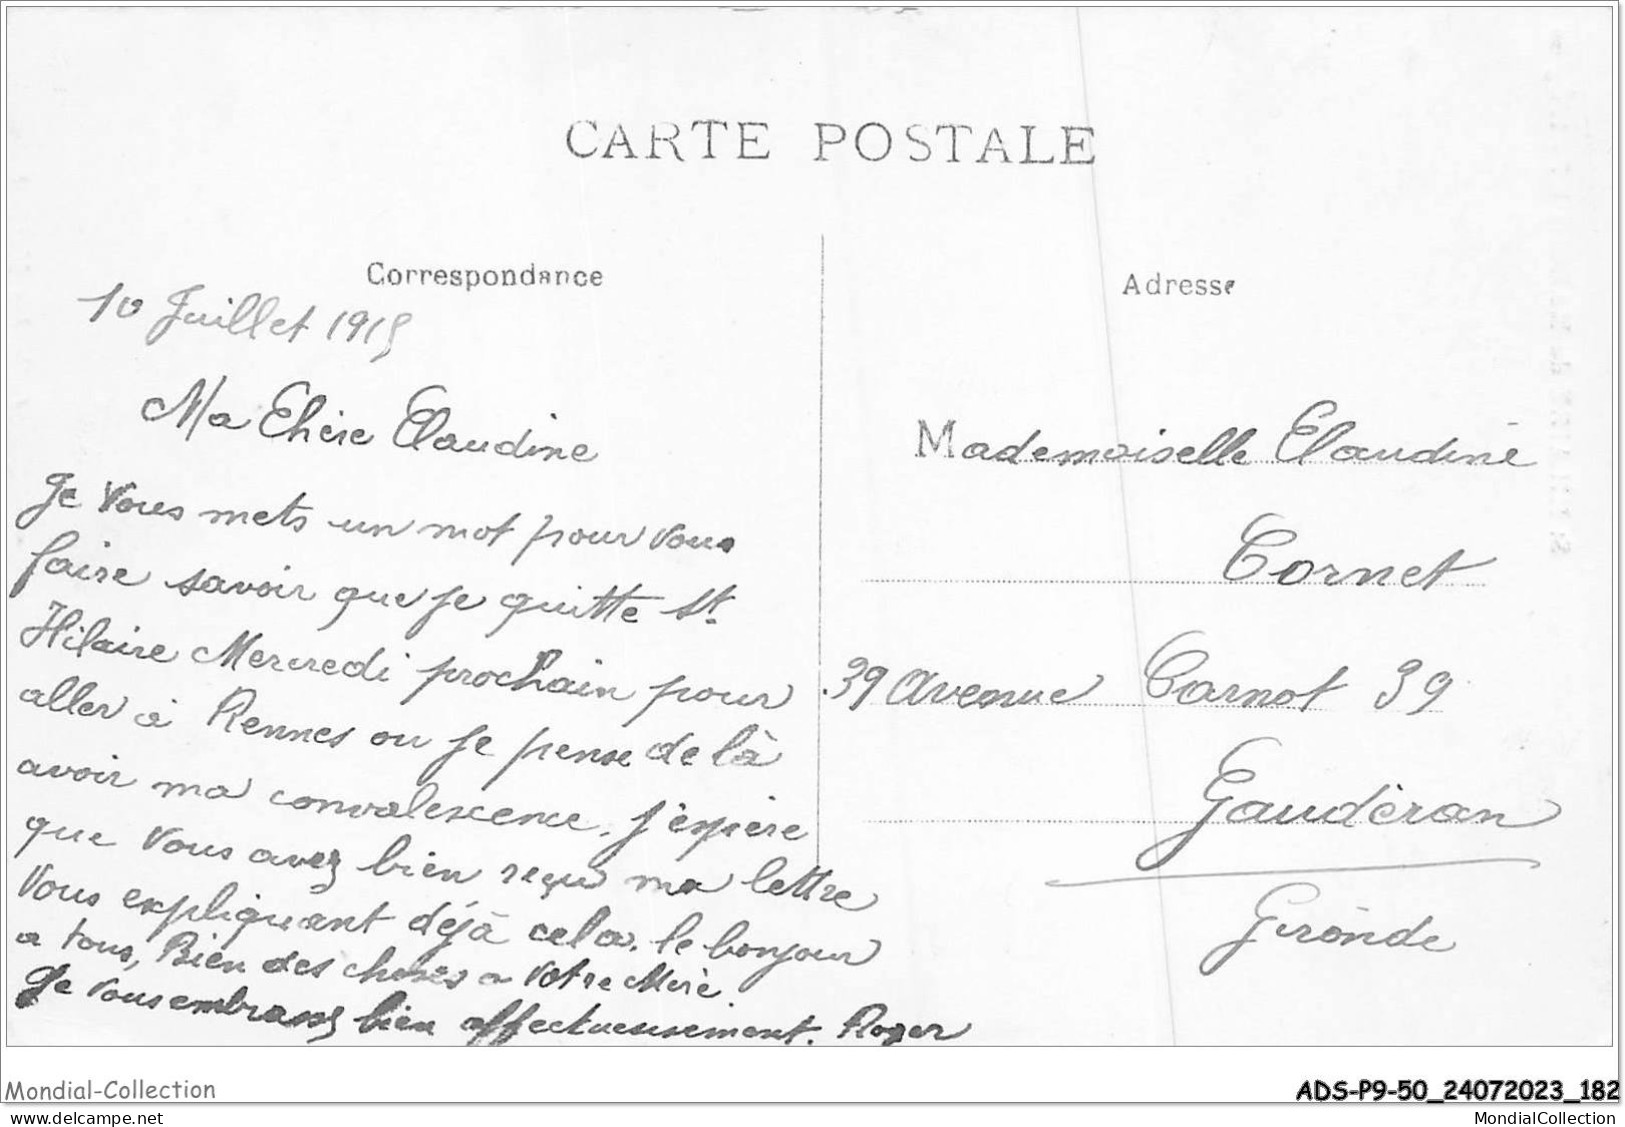 CARTE POSTALE
Correspondance
10 Juillet 1915
Ma Chère Claudine
Je Vous mets un mot pour vous
faire savoir que je quitte St.
Hilaire Mercredi prochain pour
aller à Rennes ou je pense de là
avoir ma convalescence. J'éspère
que Vous avez bien reçu ma lettre
Vous expliquant déjà cela. le bonjour
a tous, Bien des choses a Votre Mère.
Je Vous embrasse bien affectueusement. Roger
Adresse
Mademoiselle Claudine
Cornet
39 Avenue Carnot 39
Gaudèran
Gironde
Mondial-Collection
ADS-P9-50_24072023_182
MondialCollection